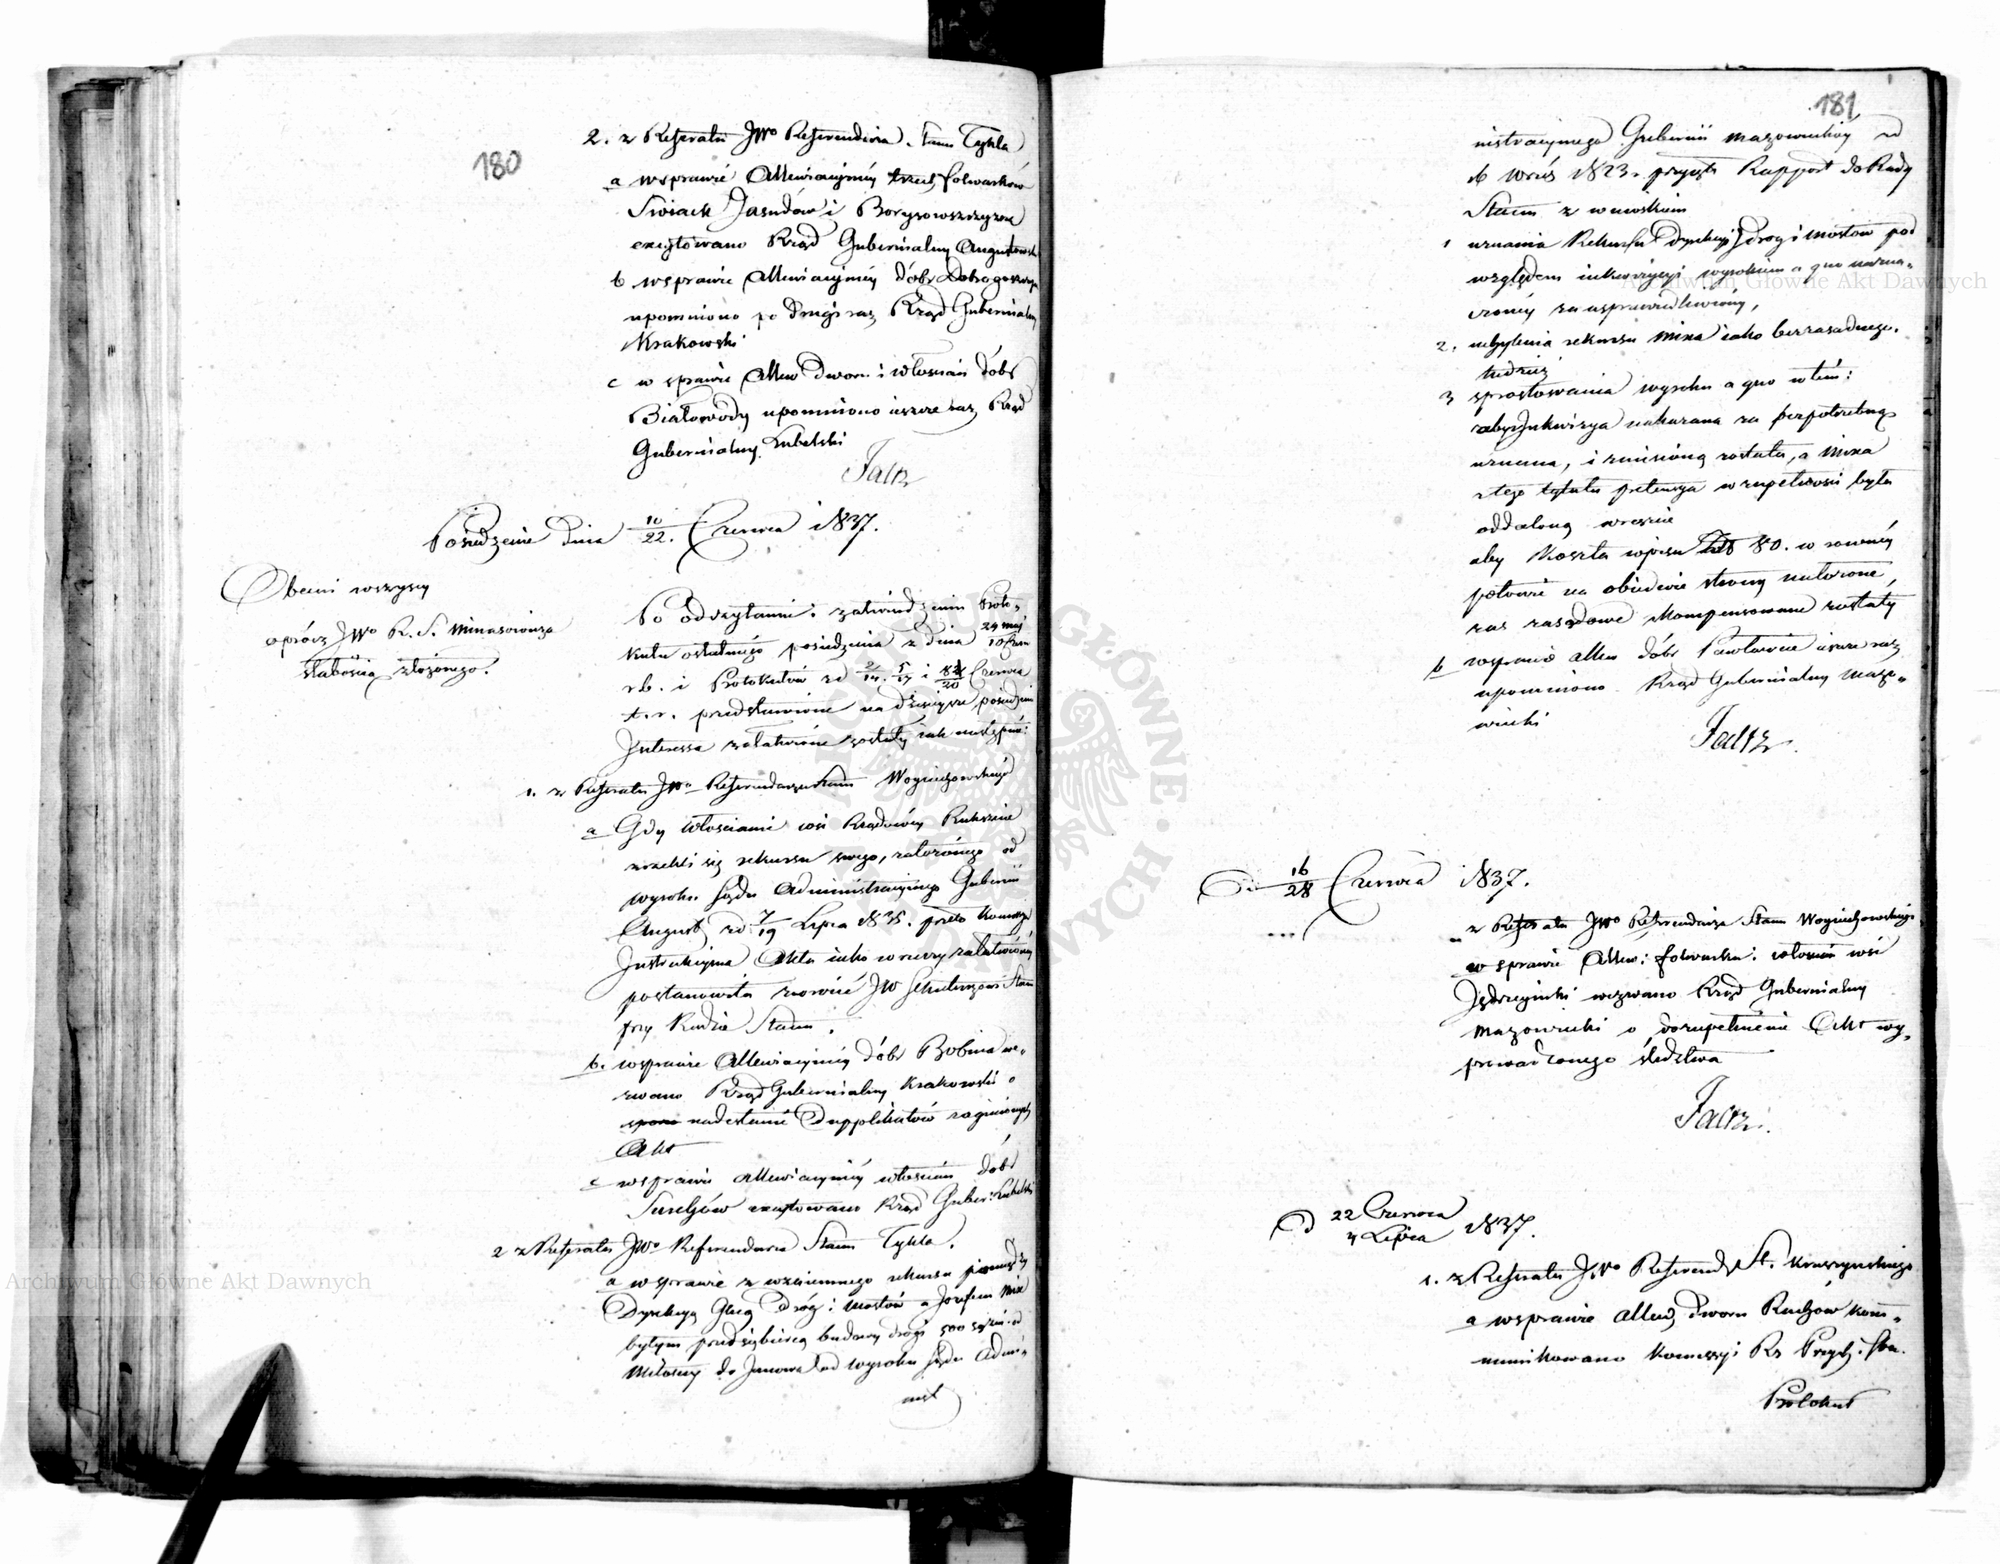 180
2. z Referatu JWo Referendarza Stanu Tykla
a w sprawie Allewiacyjnéy trzech folwarków
Swiack Jasudów i Borysowszczyzna
excytowano Rząd Gubernialny Augustowski
b w sprawie Allewiacyjnéy dóbr
upomniono po drugi raz Rząd Gubernialny
Krakowski
c w sprawie Allew Dworu i włościan dóbr
Białowody upomniono ieszcze raz Rząd
Gubernialny Lubelski
Faltz
Posiedzenie dnia 10/22. Czerwca 1837.
Obecni wszyscy
oprócz JWo R. S. Minasowicza
słabością złożonego.
Po odczytaniu i zatwierdzeniu Proto-
kułu ostatniego posiedzenia z dnia 29 Maj/10 Czer
r.b. i Protokułów z d 2/14. 5/17 i 8/20 Czerwca
t.r. przedstawione na dzisieysze posiedzenie
Interessa załatwione zostały iak następuie:
1. z Referatu JWo Referendarza Stanu Woyciechowskiego
a Gdy włościanie wsi Rządowéy Ruksznie
zrzekli się rekursu swego, założonego od
wyroku Sądu Administracyinego Gubernii
August z d 7/19 Lipca 1835. przeto Kommissya
Instrukcyina Akta iako w rzeczy załatwionéy
postanowiła zwrócić JW Sekretarzowi Stanu
przy Radzie Stanu.
b. w sprawie Allewiacyjnéy dóbr Bobin we-
zwano Rząd Gubernialny Krakowski o
nadesłanie Dupplikatów zaginionych
Akt
c w sprawie allewiacyjnéy włościan dóbr
excytowano Rząd Guber: Lubelski
2 z Referatu JWo Referendarza Stanu Tykla.
a w sprawie z wzaiemnego rekursu pomiędzy
Dyrekcyą Głną Dróg i Mostów a Jozefem Mixa
byłym przedsiębiercą budowy drogi 500 sążni od
Miłosny do Janowa od wyroku Sądu Admi-
nist
181
nistracyinego Gubernii Mazowieckiéy z d
16 Wrześ 1823 r. przyięto Rapport do Rady
Stanu z wnioskiem
1 uznania Rekursu Dyrekcyi Dróg i Mostów pod
względem inkwizycyi wyrokiem a quo nazna-
czonéy za usprawiedliwiony,
2. uchylenia rekursu Mixa iako bezzasadnego.
tudzież
3 sprostowania wyroku a quo w tém:
aby Inkwizya nakazana za bezpotrzebną
uznana, i zniesioną została, a Mixa
z tego tytułu pretensya w zupełności była
oddaloną wreszcie
aby Koszta wpisu 80. w równéy
połowie na obiedwie strony nałożone,
zaś zasądowe skompensowane zostały
b w sprawie Allew dóbr Pawłowice ieszcze raz
upomniono Rząd Gubernialny Mazo-
wiecki
Faltz.
D. 16/28 Czerwca 1837.
z Referatu JWo Referendarza Stanu Woyciechowskiego
w sprawie Allew: folwarku i włościan wsi
wezwano Rząd Gubernialny
Mazowiecki o dozupełnienie Akt wy-
prowadzonego śledztwa
Faltz.
D 22 Czerwca/4 Lipca 1837.
1. z Referatu JWo Referend. St. Kruszyńskiego
a w sprawie Allew, Dworu Ruchzow kom-
munikowano Kommissyi Rz Przych: i Ska.
Protokuł
Archiwum Główne Akt Dawnych
Archiwum Główne Akt Dawnych